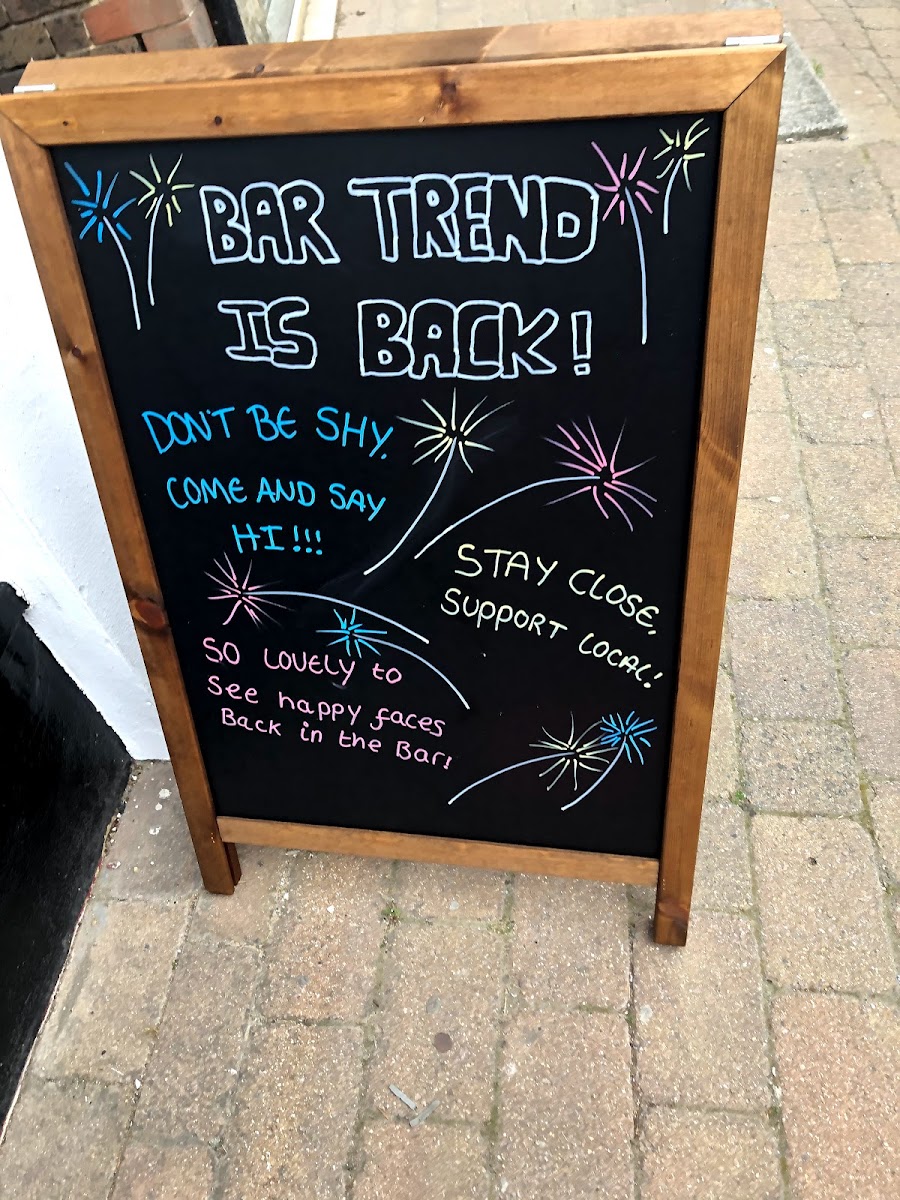 BAR TREND
IS BACK!
DON'T BE SHY,
COME AND SAY
HI!!!
STAY CLOSE,
SUPPORT LOCAL!
SO LOVELY to
see happy faces
Back in the Bar!